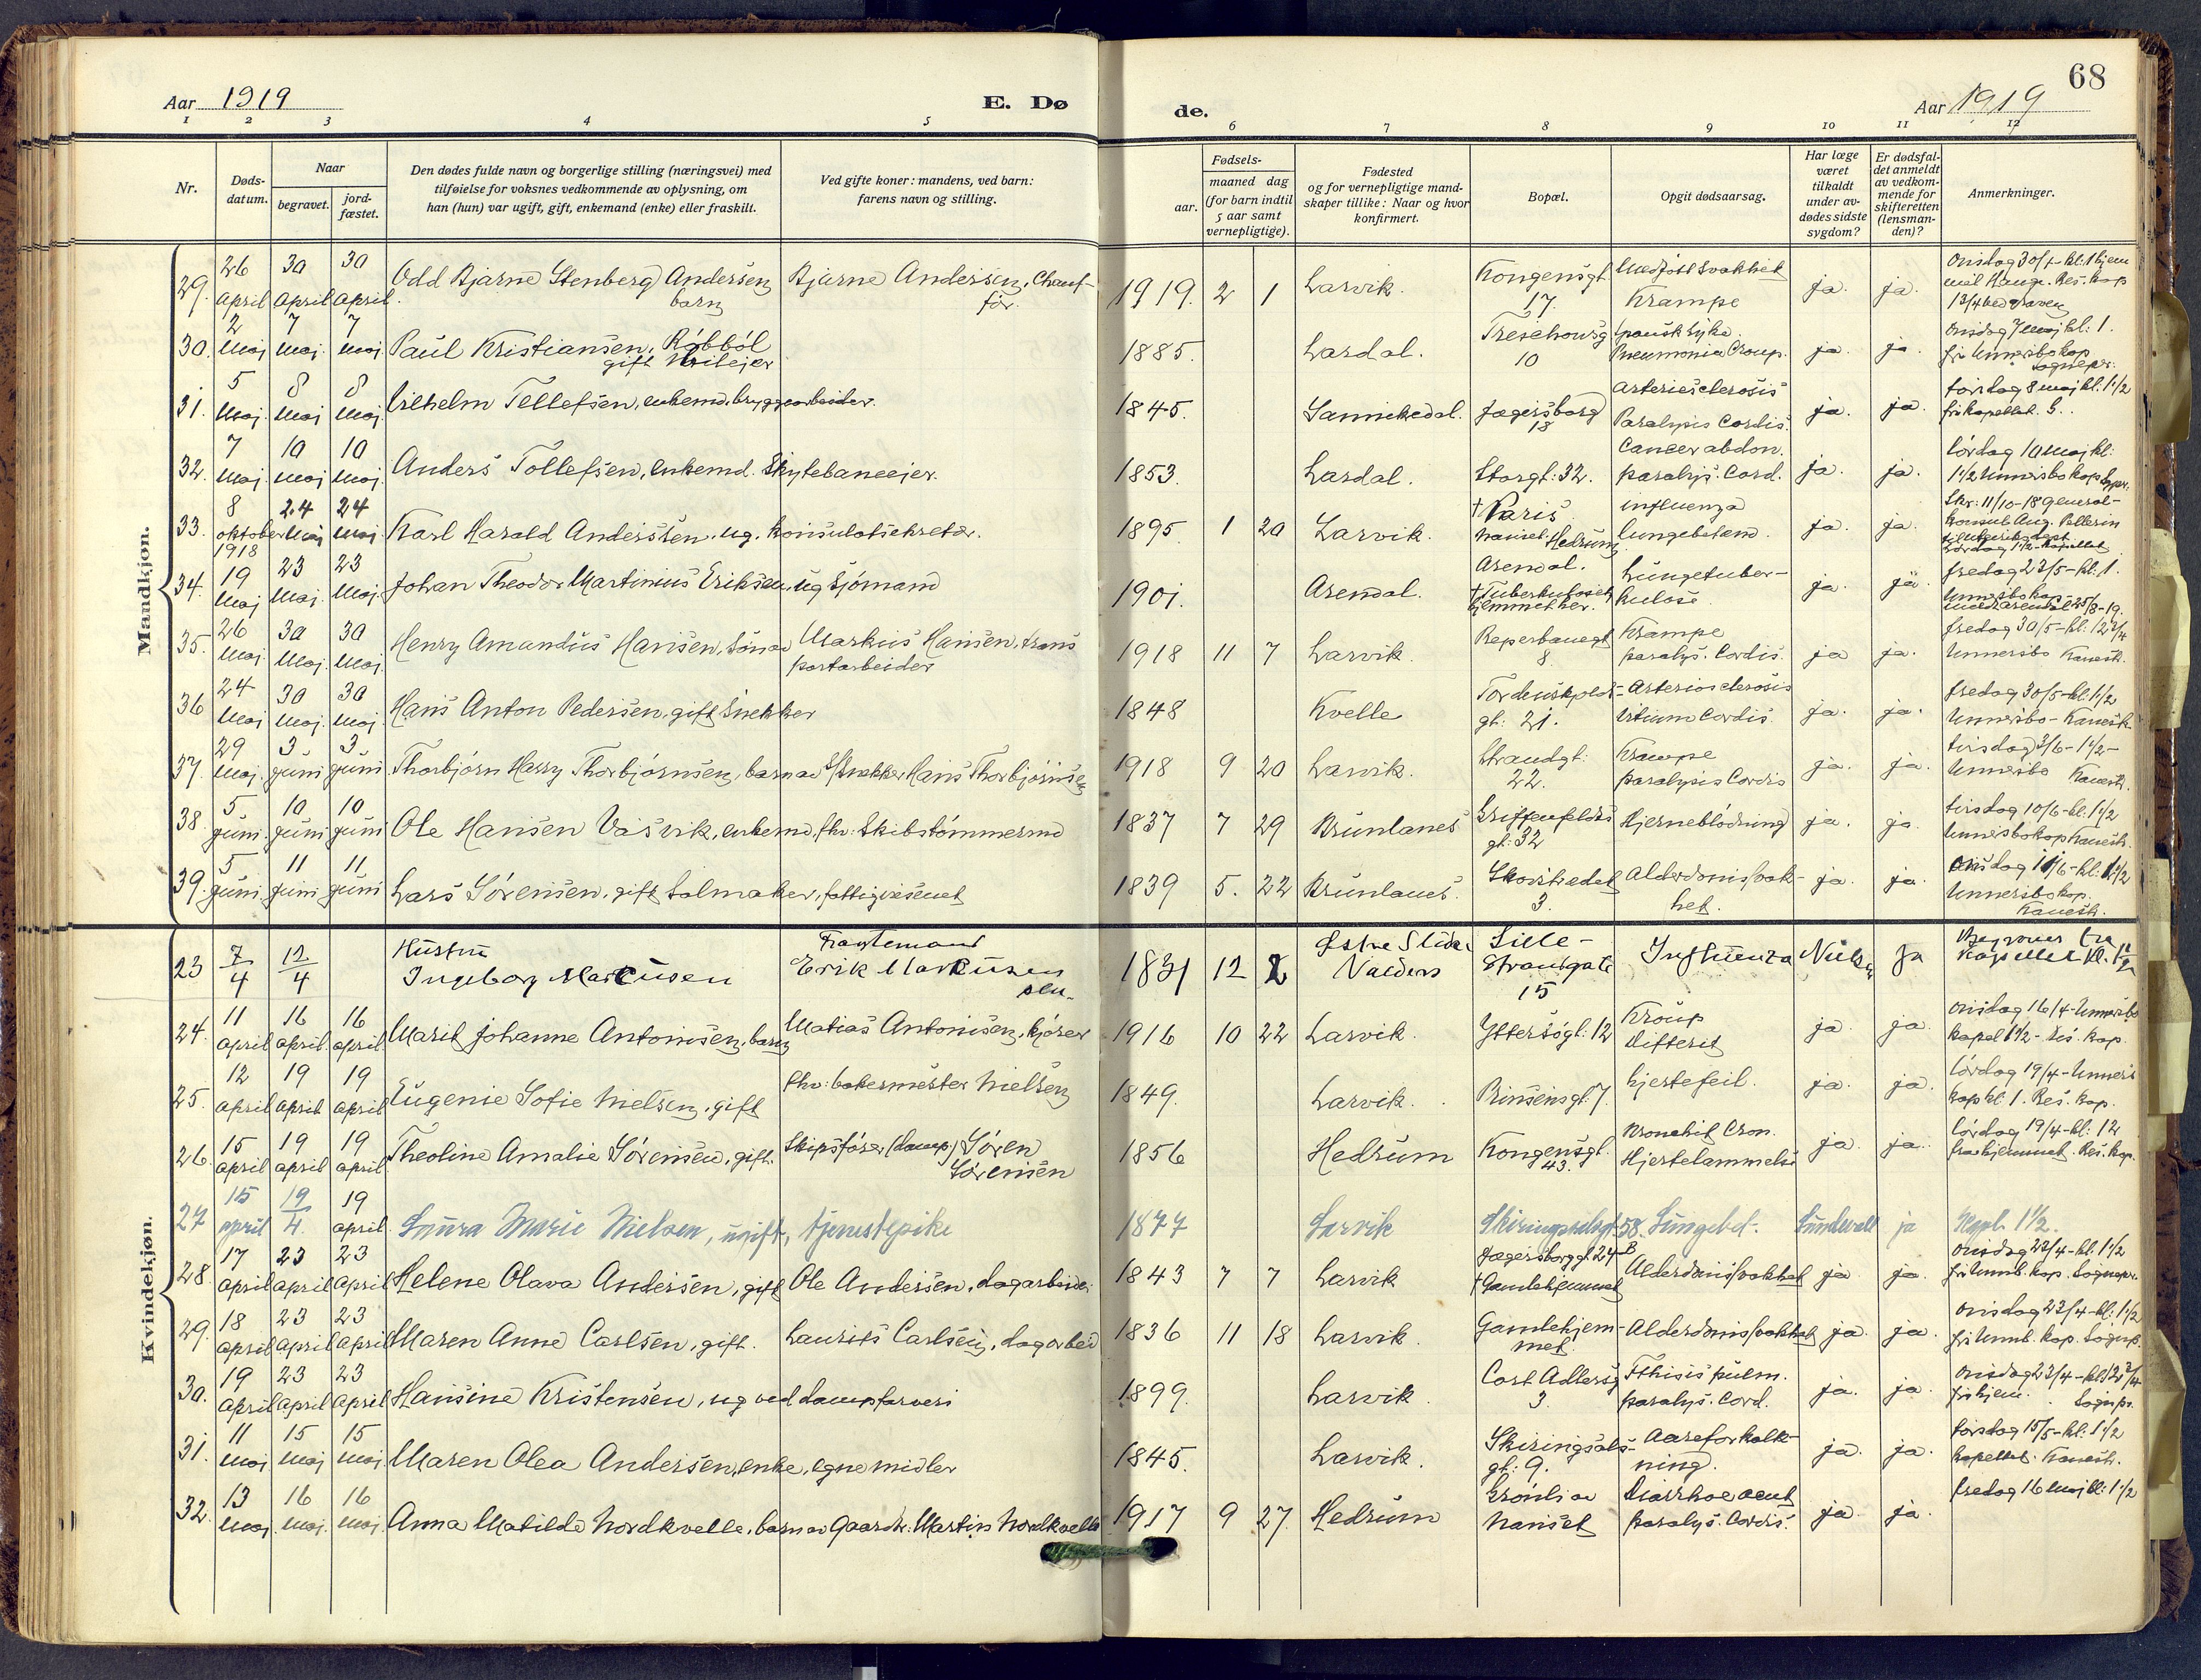 68
Aar 1919 E. Dø de. Aar 1919
1 2 3 4 5 6 7 8 9 10 11 12
Nr. Døds-datum. Naar begravet. jord-fæstet. Den dødes fulde navn og borgerlige stilling (næringsvei) med tilføielse for voksnes vedkommende av oplysning, om han (hun) var ugift, gift, enkemand (enke) eller fraskilt. Ved gifte koner: mandens, ved barn: farens navn og stilling. Fødsels- aar. maaned dag (for barn indtil 5 aar samt vernepligtige). Fødested og for vernepligtige mandskaper tillike: Naar og hvor konfirmert. Bopæl. Opgit dødsaarsag. Har læge været tilkaldt under avdødes sidste sygdom? Er dødsfaldet anmeldt av vedkommende for skifteretten (lensmanden)? Anmerkninger.
Mandkjøn.
29. 26 april 30 april 30 april. Odd Bjarne Stenberg Andersen barn Bjarne Andersen, Chauffør. 1919. 2 1 Larvik. Kongensgt. 17. Medfødt svakhet Krampe ja. ja. Onsdag 30/4 kl. 1 hjem
30. 2 maj 7 maj. 7 maj. Paul Kristiansen, gift 1885. Lardal. 10 spansk syke. Pneumonia Croup. ja. ja. onsdag 7 maj kl: 1.
31. 5 maj. 8 maj 8 maj Vilhelm Tellefsen, enkemd. bryggearbeider. 1845. Sannikedal. Jægersborg 18 arteriesclerosis Paralysis Cordis. ja. ja. torsdag 8 maj kl: 1 1/2 kapellet.
32. 7 maj. 10 maj 10 maj. Anders Tollefsen, enkemd. Skytebaneejer. 1853. Lardal. Storgt: 32. Cancer abdom. paralys. Cord. ja. ja. lørdag 10 maj kl: 1 1/2
33. 8 oktober 1918 24 maj 24 maj. Karl Harald Anderssen. ug. konsulatsekretær. 1895. 1 20 Larvik. † Paris Nanset. Hedrum. influenza lungebetend. ja. ja. Skr: 11/10-18 general-konsul Aug. Pellerin
34. 19 maj 23 maj. 23 maj. Johan Theodor Martinius Eriksen, ug Sjømand 1901. Arendal. Arendal. † Tuberkulosehjemmet her. Lungetuberkulose ja. ja. fredag 23/5 - kl. 1.
35. 26 maj. 30 maj. 30 maj. Henry Amandus Hansen, søn av Markus Hansen, transportarbeider 1918 11 7 Larvik. Reperbanegt 8. Krampe paralys. Cordis. ja ja. fredag 30/5 - kl: 12 3/4
36 24 maj 30 maj. 30 maj. Hans Anton Pedersen, gift Snekker 1848 Kvelle Tordenskjolds-gt: 21. Arteriosclerosis Vitium Cordis. ja. ja. fredag 30/5 - kl: 1 1/2
37. 29 maj. 3. juni 3. juni. Thorbjørn Harry Thorbjørnsen, barn av Snekker Hans Thorbjørnsen 1918 9 20 Larvik. Strandgt: 22. Krampe paralysis Cordis ja. ja. tirsdag 3/6 - 1 1/2 -
38. 5 juni. 10 juni 10 juni Ole Hansen Vasvik, enkemd, fhv: Skibstømmermd 1837 7 29 Brunlanes Griffenfeldts gt: 32 Hjerneblødning ja. ja. tirsdag 10/6 - kl: 1 1/2
39. 5 juni. 11 juni 11 juni Lars Sørensen, gift Solmaker, fattigvæsenet 1839 5. 22 Brunlanes. 3. Alderdomssvakhet. ja. ja. onsdag 11/6 - kl: 1 1/2
Kvindekjøn.
23 7/4 12/4 Hustru Ingeborg Markussen Fragtemand Erik Markussen 1831 12 2 Østre Slidre Valders Lille-Strandgate 15 Influenza Ja
24. 11 april 16 april. 16 april. Marit Johanne Antonisen, barn Matias Antonisen, kjører 1916 10 22 Larvik. Yttersøgt: 12 Kroup Difterit ja. ja. onsdag 16/4 - kapel 1 1/2 - Res. kap.
25. 12 april 19 april 19 april Eugenie Sofie Nielsen, gift fhv: bakermester Nielsen 1849. Larvik. Prinsensgt. 7. hjertefeil. ja. ja. lørdag 19/4 - kap kl 1. Res. kap.
26. 15 april 19 april 19 april Theoline Amalie Sørensen, gift. Skipsfører (damp) Søren Sørensen 1856 Hedrum Kongensgt. 43. Bronchit Cron. Hjertelammelse ja. ja. lørdag 19/4 - kl: 12 fra hjemmet. Res. kap.
27 15 april 19/4. 19 april. Laura Marie Nielsen, ugift, tjenestepike 1877 Larvik Skiringssalsgt 58. Lungebet. Sundevall ja Kapl. 1 1/2.
28. 17 april 23 april 23 april Helene Olava Andersen, gift Ole Andersen, dagarbeider 1843 7 7 Larvik Jægersborggt 24 B † Gamlehjemmet Alderdomssvakhet ja. ja. onsdag 23/4 - kl: 1 1/2
29. 18 april 23 april 23 april Maren Anne Carlsen, gift. Laurits Carlsen, dagarbeid 1836 11 18 Larvik. Gamlehjemmet. Alderdomssvakhet ja. ja. onsdag 23/4 - kl: 1 1/2
30. 19 april 23 april 23 april Hansine Kristensen, ug ved dampfarveri 1899. Larvik. Cort Adlersg 3. Fthisis pulm. paralys. Cord. ja. ja. onsdag 23/4 - kl 12 3/4
31. 11 maj 15 maj 15 maj Maren Olea Andersen, enke, egne midler 1845. Larvik. Skiringsals-gt: 9. Aareforkalkning. ja. ja. torsdag 15/5 - kl: 1 1/2 kapellet.
32. 13 maj. 16 maj. 16 maj. Anna Matilde Nordkvelle, barn av Gaardbr. Martin Nordkvelle 1917 9 27. Hedrum Grønli av Nanset Diarrhoe acut paralys. Cordis. ja. ja. fredag 16 maj kl: 1 1/2